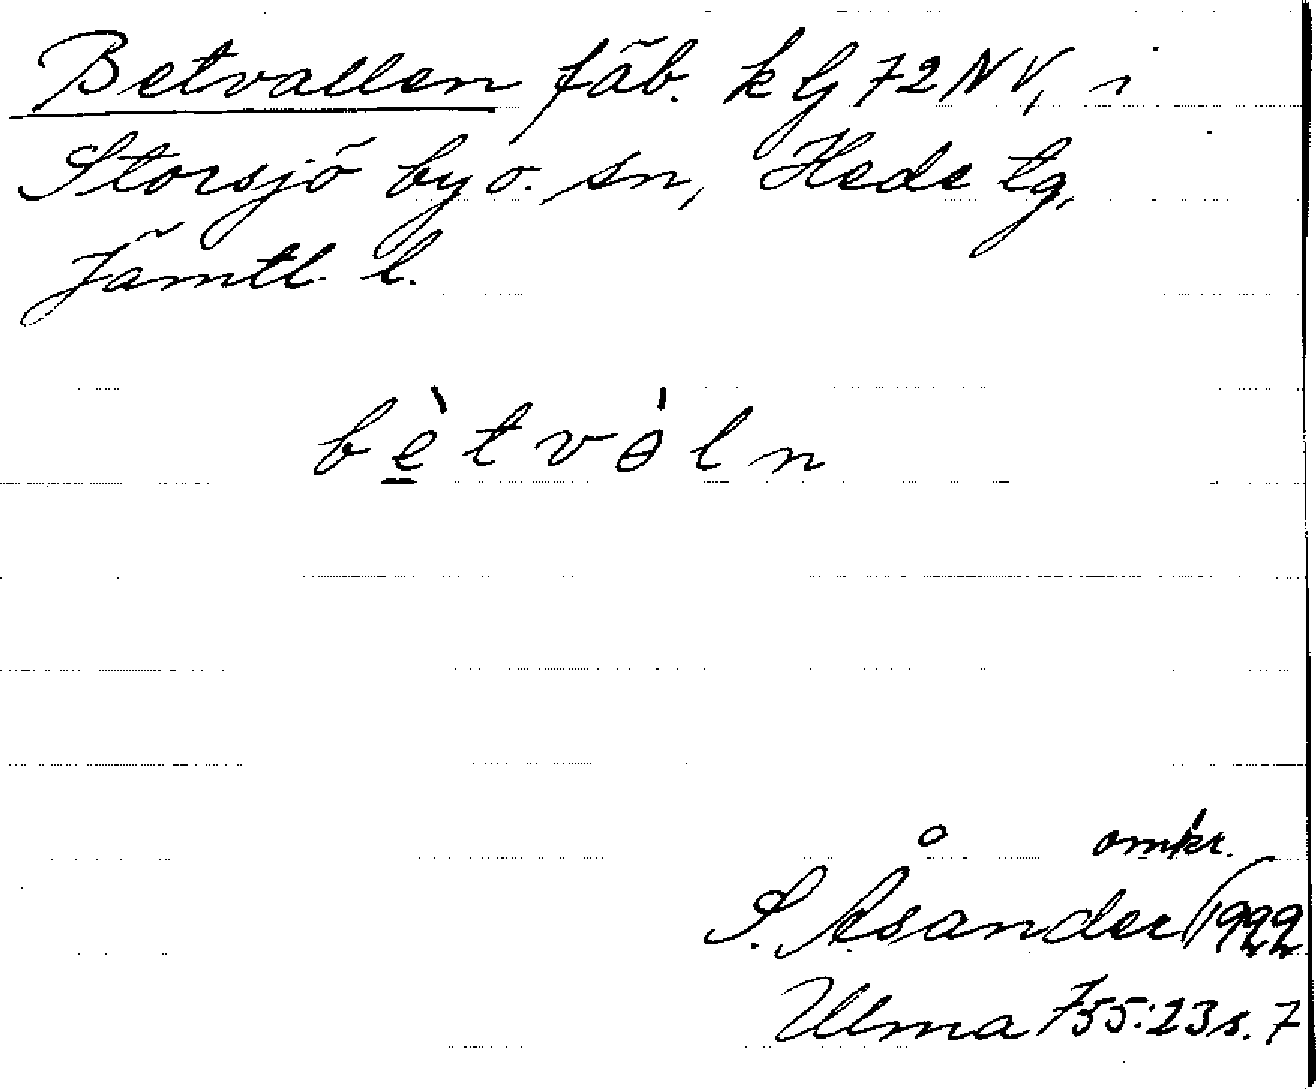 Betvallen fäb. k bl 72 NV, i
Storsjö by o. sn, Hede tg,
Jämtl. l.
bètvàln
omkr.
S. Åsander 1922
Ulma 755:23 s. 7